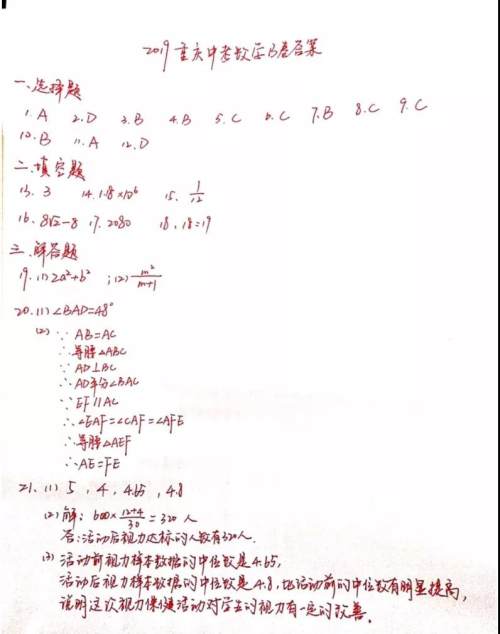 2019重庆中考数学B卷答案
一、选择题
1. A 2. D 3. B 4. B 5. C 6. C 7. B 8. C 9. C
10. B 11. A 12. D
二、填空题
13. 3 14. 1.18×10⁶ 15. 1/12
16. 8√2-8 17. 2080 18. 18:19
三、解答题
19. (1) 2a²+b² ; (2) m²/(m+1)
20. (1) ∠BAD=48°
(2) ∵ AB=AC
∴等腰△ABC
∵ AD⊥BC
∴AD平分∠BAC
∵EF∥AC
∴∠EAF=∠CAF=∠AFE
∴等腰△AEF
∴AE=FE
21. (1) 5, 4, 4.65, 4.8
(2) 解: 600×(12+4)/30=320 人
答:活动后视力达标的人数有320人.
(3) 活动前视力样本数据的中位数是4.65,
活动后视力样本数据的中位数是4.8,比活动前的中位数有明显提高,
说明这次视力保健活动对学生的视力有一定的改善。